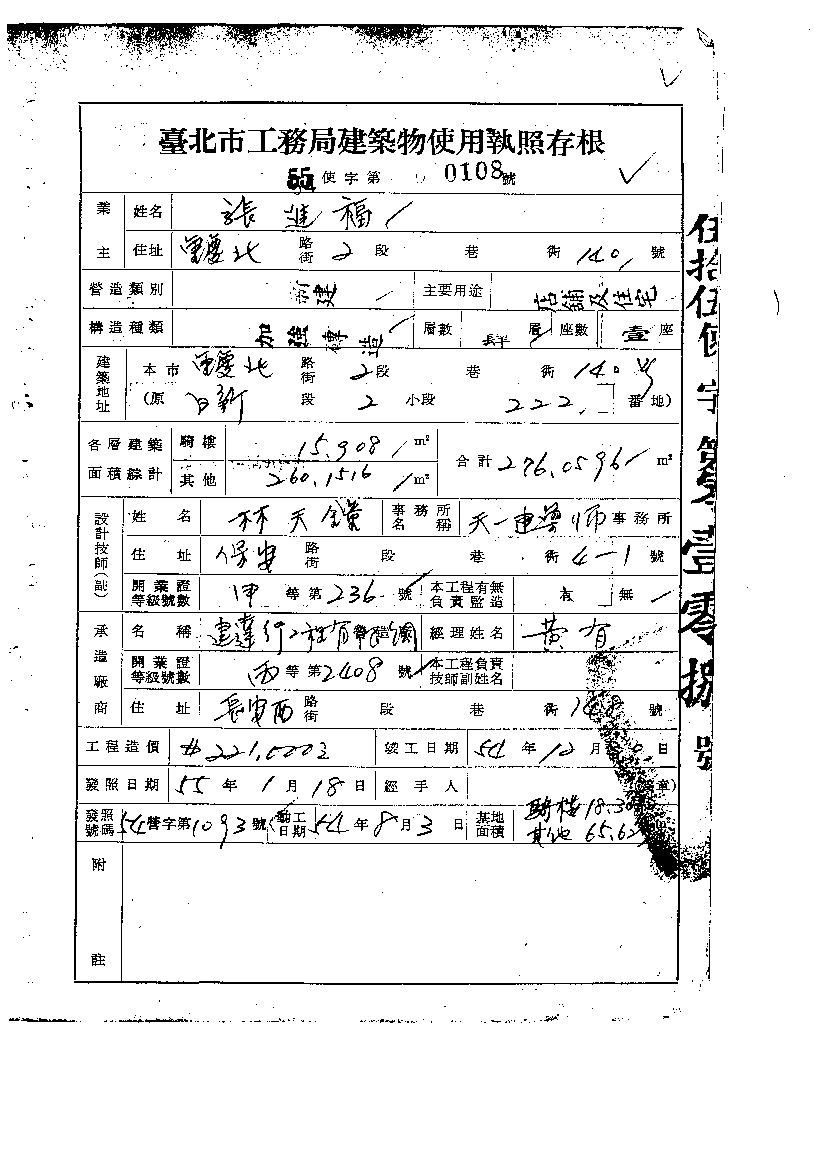 臺北市工務局建築物使用執照存根
55 使字第 0108 號
業主 姓名 張進福
住址 重慶北 路街 2 段 巷 衖 140 號
營造類別 新建 主要用途 店舖及住宅
構造種類 加強磚造 層數 層 座數 壹座
建築地址 本市 重慶北 路街 2 段 巷 衖 140 號
(原 日新 段 2 小段 222 番地)
各層建築面積綜計 騎樓 15.908 m² 合計 276.0596 m²
其他 260.1516 m²
設計技師(副) 姓名 林天 事務所名稱 天一建築師事務所
住址 保安 路街 段 巷 衖 4-1 號
開業證等級號數 甲 等第 236 號 本工程有無負責監造 有 無
承造廠商 名稱 建達行 經理姓名 黃有
開業證等級號數 丙 等第 2408 號 本工程負責技師副姓名
住址 長安西 路街 段 巷 衖 148 號
工程造價 竣工日期 54 年 12 月 日
發照日期 55 年 1 月 18 日 經手人 章)
發照號碼 54 營字第 1093 號 動工日期 54 年 8 月 3 日 基地面積 騎樓 18.30
其他 65.62
附註
伍拾伍使字第零壹零捌號